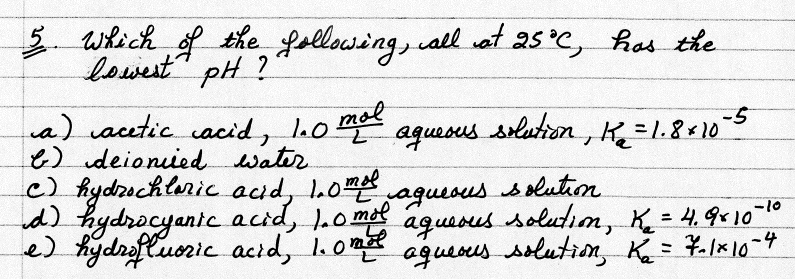 5. Which of the following, all at 25°C, has the
lowest pH?
a) acetic acid, 1.0 mol/L aqueous solution, Ka = 1.8 × 10⁻⁵
b) deionized water
c) hydrochloric acid, 1.0 mol/L aqueous solution
d) hydrocyanic acid, 1.0 mol/L aqueous solution, Ka = 4.9 × 10⁻¹⁰
e) hydrofluoric acid, 1.0 mol/L aqueous solution, Ka = 7.1 × 10⁻⁴